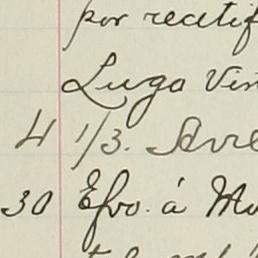 por rectif
Lugo Vin
4 1/3. Arre
30 Efvo. á Mo